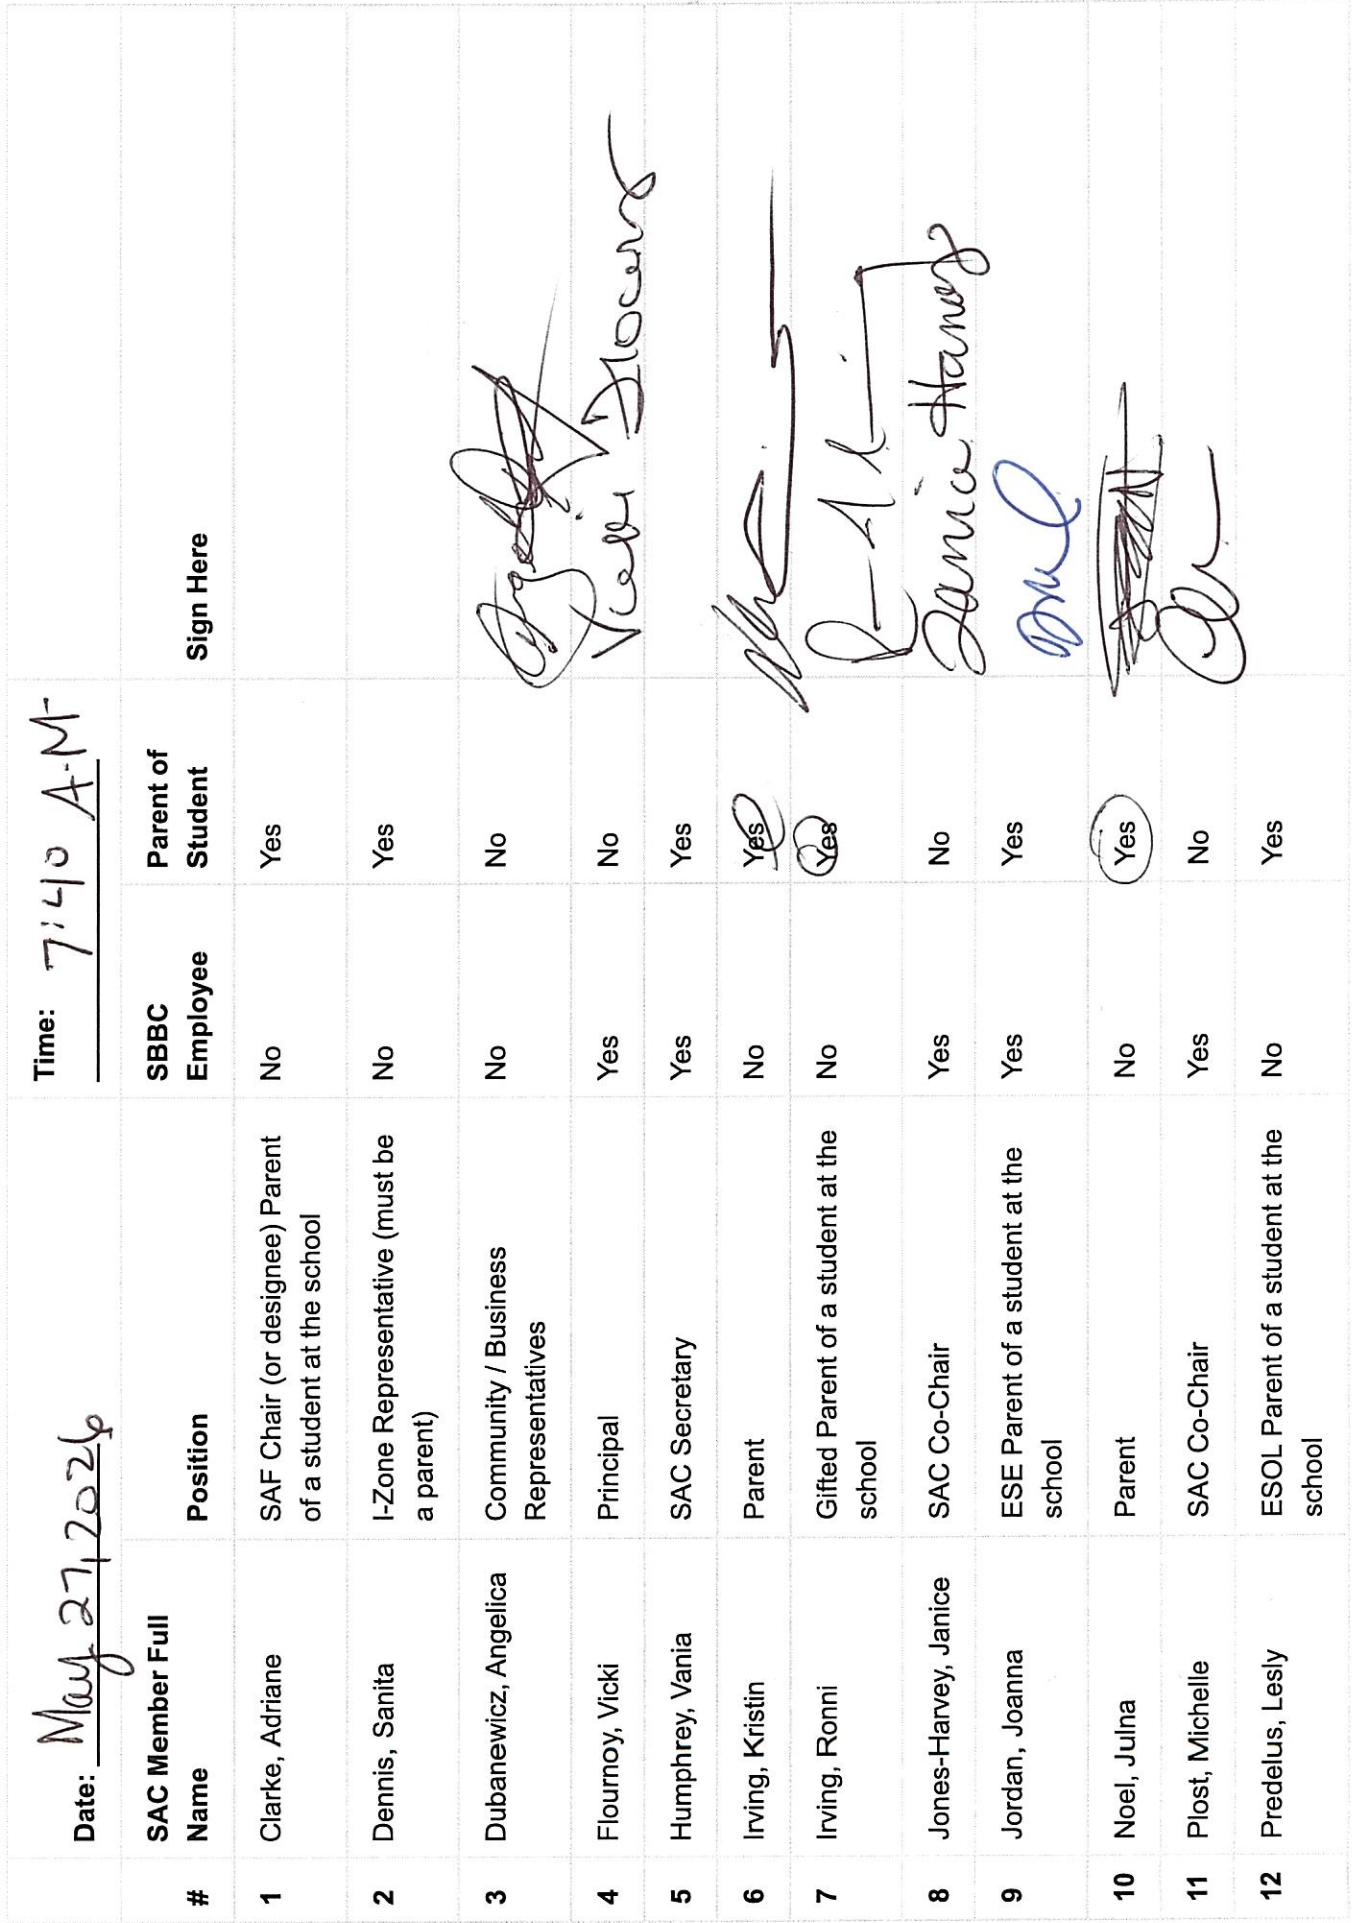 Date: May 27, 2026 Time: 7:40 A.M.
# SAC Member Full Name Position SBBC Employee Parent of Student Sign Here
1 Clarke, Adriane SAF Chair (or designee) Parent of a student at the school No Yes
2 Dennis, Sanita I-Zone Representative (must be a parent) No Yes
3 Dubanewicz, Angelica Community / Business Representatives No No
4 Flournoy, Vicki Principal Yes No Vicki
5 Humphrey, Vania SAC Secretary Yes Yes
6 Irving, Kristin Parent No Yes
7 Irving, Ronni Gifted Parent of a student at the school No Yes
8 Jones-Harvey, Janice SAC Co-Chair Yes No
9 Jordan, Joanna ESE Parent of a student at the school Yes Yes
10 Noel, Julna Parent No Yes
11 Plost, Michelle SAC Co-Chair Yes No
12 Predelus, Lesly ESOL Parent of a student at the school No Yes